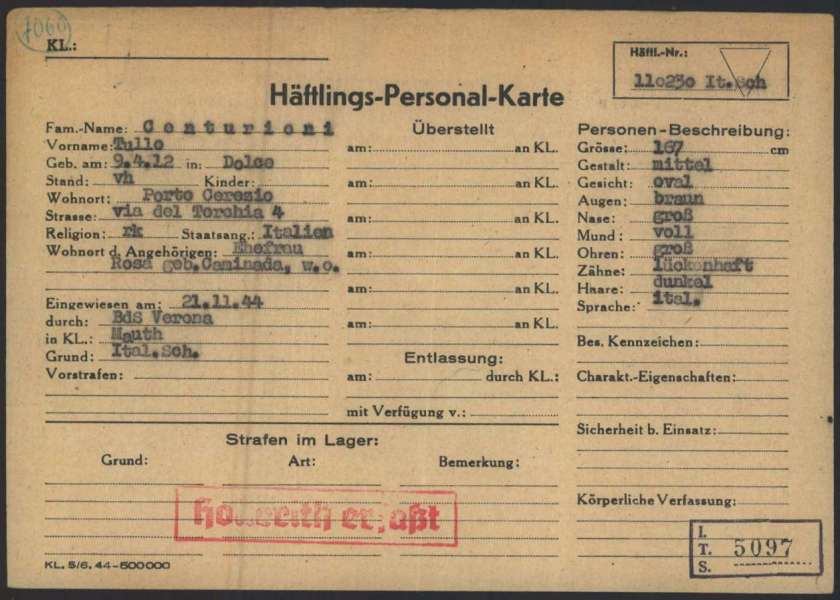 7060
KL.:
Häftl.-Nr.:
110230 It.Sch
Häftlings-Personal-Karte
Fam.-Name: Centurioni
Vorname: Tullo
Geb. am: 9.4.12 in: Dolce
Stand: vh Kinder:
Wohnort: Porto Ceresio
Strasse: via del Torchia 4
Religion: rk Staatsang.: Italien
Wohnort d. Angehörigen: Ehefrau
Rosa geb.Caminada, w.o.
Eingewiesen am: 21.11.44
durch: BdS Verona
in KL.: Mauth
Grund: Ital.Sch.
Vorstrafen:
Überstellt
am: an KL.
am: an KL.
am: an KL.
am: an KL.
am: an KL.
am: an KL.
Entlassung:
am: durch KL.:
mit Verfügung v.:
Personen-Beschreibung:
Grösse: 167 cm
Gestalt: mittel
Gesicht: oval
Augen: braun
Nase: groß
Mund: voll
Ohren: groß
Zähne: lückenhaft
Haare: dunkel
Sprache: ital.
Bes. Kennzeichen:
Charakt.-Eigenschaften:
Sicherheit b. Einsatz:
Körperliche Verfassung:
Strafen im Lager:
Grund: Art: Bemerkung:
Hollerith erfaßt
I.
T. 5097
S.
KL. 5/6. 44-500000